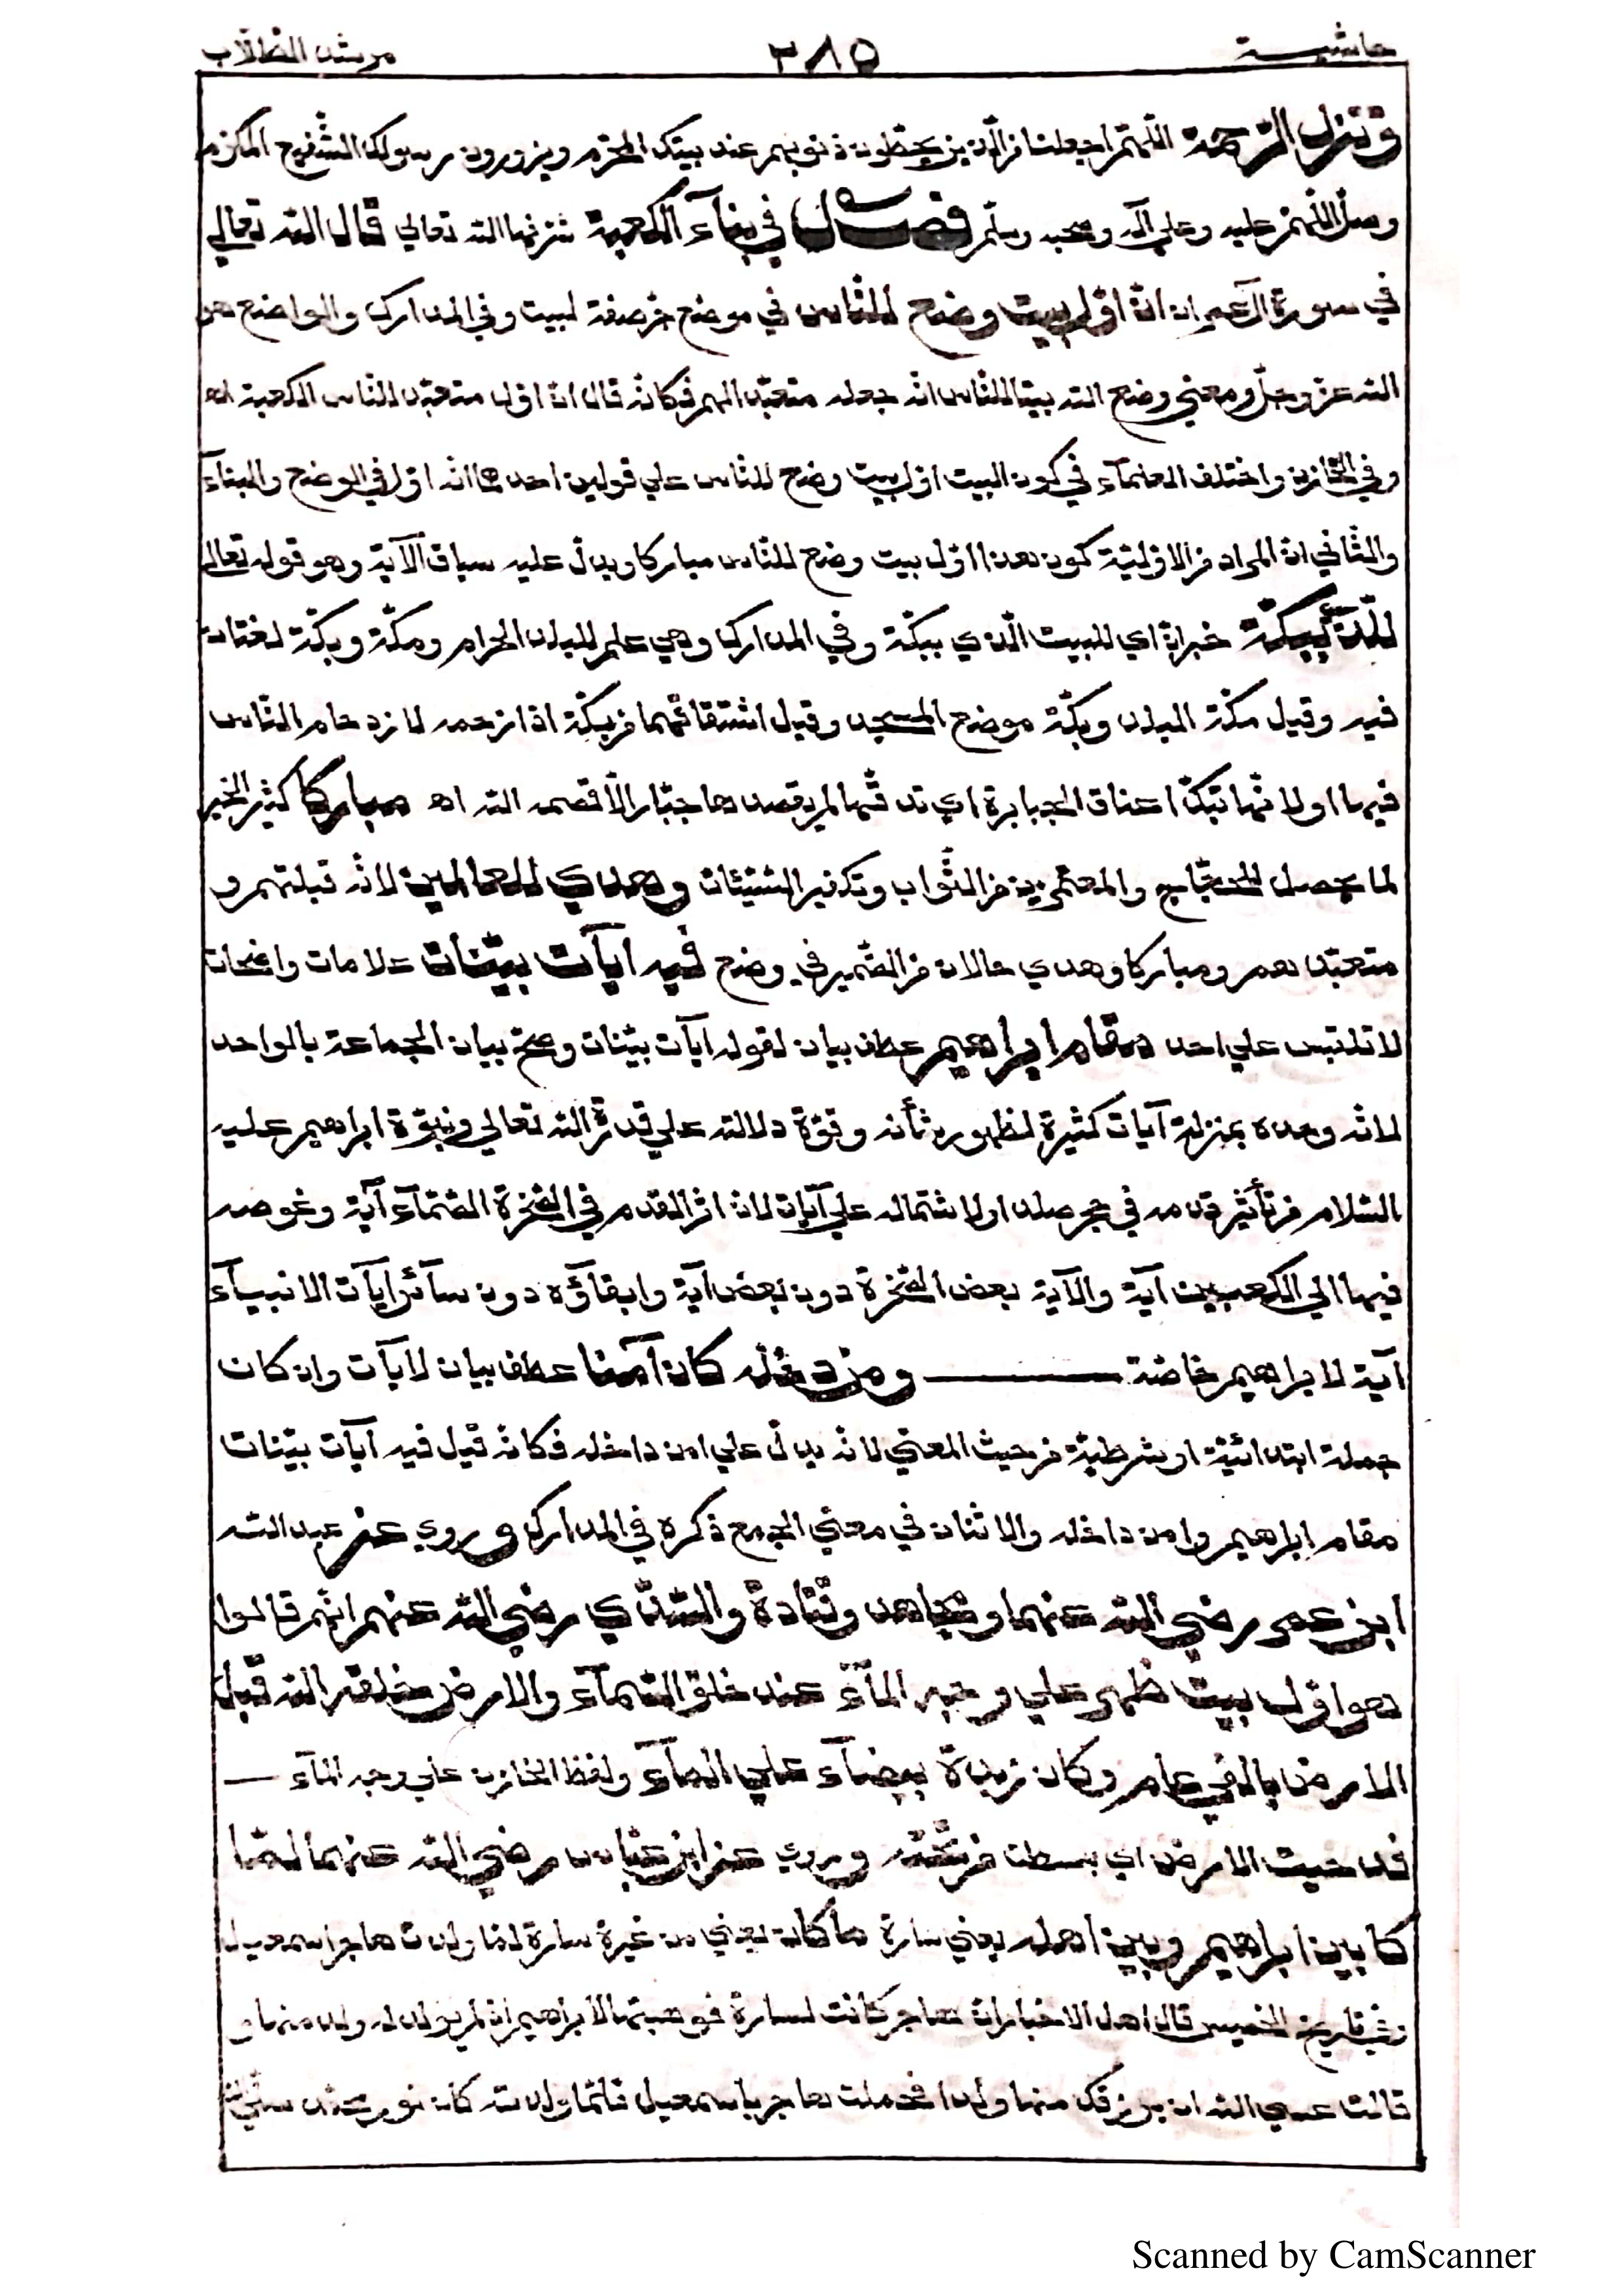 حاشية ٣٨٥ مرشد الطلاب
وتنزل الرحمة اللهم اجعلنا من الذين يحطون ذنوبهم عند بيتك المحرم ويزورون رسولك الشفيع المكرم
وصل اللهم عليه وعلى آله وصحبه وسلم فصل في بناء الكعبة شرفها الله تعالي قال الله تعالي
في سورة آل عمران ان اول بيت وضع للناس في موضع جر صفة لبيت وفي المدارك والواضع هو
الله عز وجل ومعني وضع الله بيتا للناس انه جعله متعبد الهم فكانه قال ان اول متعبد للناس الكعبة اه
وفي الخازن واختلف العلماء في كون البيت اول بيت وضع للناس علي قولين احدهما انه اول في الوضع والبناء
والثاني ان المراد من الاولية كون هذا اول بيت وضع للناس مباركا ويدل عليه سياق الآية وهو قوله تعالي
للذي ببكة خبران اي للبيت الذي ببكة وفي المدارك وهي علم للبلد الحرام ومكة وبكة لغتان
فيه وقيل مكة البلد وبكة موضع المسجد وقيل اشتقاقهما من بكة اذا زحمه لازدحام الناس
فيها اولانها تبك اعناق الجبابرة اي تدقها لم يقصدها جبار الا قصمه الله اه مباركا كثير الخير
لما يحصل للحجاج والمعتمرين من الثواب وتكفير السيئات وهدي للعالمين لانه قبلتهم و
متعبدهم ومباركا وهدي حالان من الضمير في وضع فيه آيات بينات علامات واضحات
لا تلتبس علي احد مقام ابراهيم عطف بيان لقوله آيات بينات وصح بيان الجماعة بالواحد
لانه وحده بمنزلة آيات كثيرة لظهور شأنه وقوة دلالته علي قدرة الله تعالي ونبوة ابراهيم عليه
السلام من تأثير قدمه في حجر صلد اولاشتماله علي آيات لان اثر القدم في الصخرة الصماء آية وغوصه
فيها الي الكعبين آية والآية بعض الصخرة دون بعض آية وابقاؤه دون سائر آيات الانبياء
آية لابراهيم خاصة ــــــ ومن دخله كان آمنا عطف بيان لآيات وان كان
جملة ابتدائية او شرطية من حيث المعني لانه يدل علي امن داخله فكانه قيل فيه آيات بينات
مقام ابراهيم وامن داخله والاثنان في معني الجمع ذكره في المدارك وروي عن عبد الله
ابن عمر رضي الله عنهما ومجاهد وقتادة والسدي رضي الله عنهم انهم قالوا
هو اول بيت ظهر علي وجه الماء عند خلق السماء والارض خلقه الله قبل
الارض بالفي عام وكان زبدة بيضاء علي الماء ولفظ الخازن علي وجه الماء ــ
فدحيت الارض اي بسطت من تحته وروي عن ابن عباس رضي الله عنهما لما
كا بين ابراهيم وبين اهله يعني سارة ما كان يعني من غيرة سارة لما ولدت هاجر اسمعيل
وفي تاريخ الخميس قال اهل الاخبار ان هاجر كانت لسارة فوهبتها لابراهيم اذ لم يولد له ولد منها و
قالت عسي الله ان يرزقك منها ولدا فحملت هاجر باسمعيل فلما ولدته كان نور محمد
Scanned by CamScanner